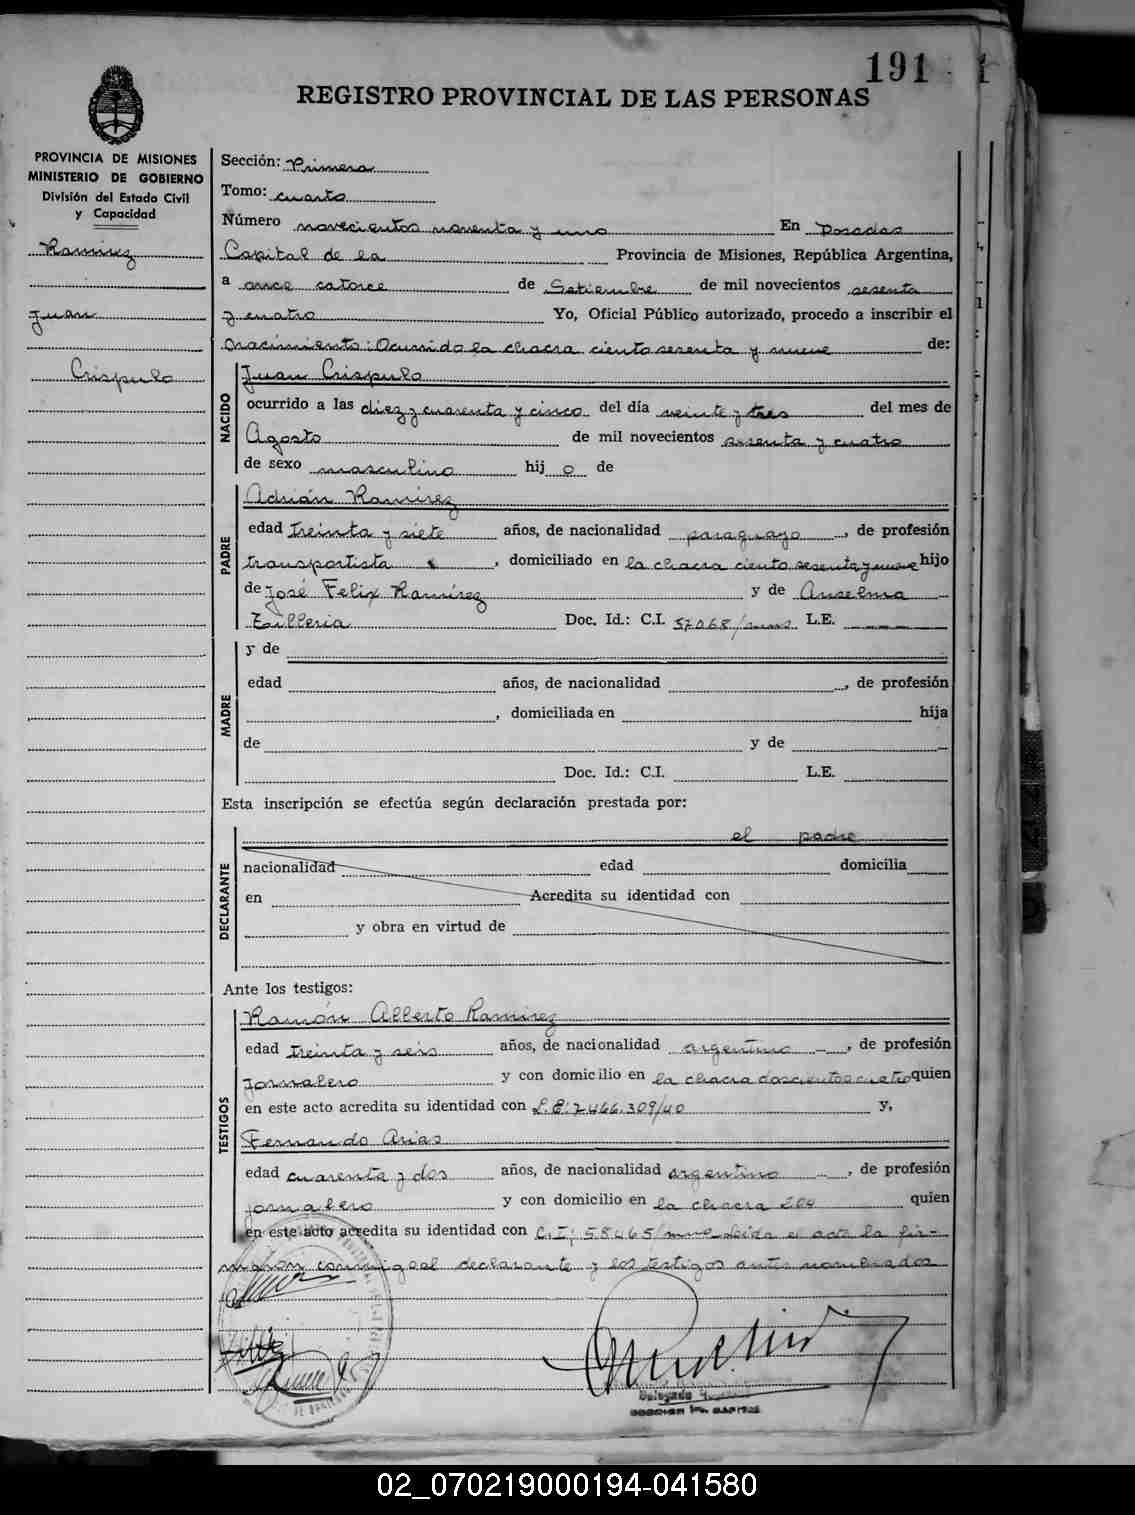 191
REGISTRO PROVINCIAL DE LAS PERSONAS
PROVINCIA DE MISIONES
MINISTERIO DE GOBIERNO
División del Estado Civil
y Capacidad
Ramirez
Juan
Crispulo
Sección: Primera
Tomo: cuarto
Número novecientos noventa y uno En Posadas
Capital de la Provincia de Misiones, República Argentina,
a once catorce de Setiembre de mil novecientos sesenta
y cuatro Yo, Oficial Público autorizado, procedo a inscribir el
nacimiento: Ocurrido la chacra ciento sesenta y nueve de:
NACIDO
Juan Crispulo
ocurrido a las diez y cuarenta y cinco del día veinte y tres del mes de
Agosto de mil novecientos sesenta y cuatro
de sexo masculino hij o de
PADRE
Adrián Ramirez
edad treinta y siete años, de nacionalidad paraguayo, de profesión
transportista, domiciliado en la chacra ciento sesenta y nueve hijo
de José Felix Ramírez y de Anselma
Doc. Id.: C.I. 57068/mns L.E.
MADRE
y de
edad años, de nacionalidad, de profesión
, domiciliada en hija
de y de
Doc. Id.: C.I. L.E.
Esta inscripción se efectúa según declaración prestada por:
DECLARANTE
el padre
nacionalidad edad domicilia
en Acredita su identidad con
y obra en virtud de
Ante los testigos:
TESTIGOS
Ramón Alberto Ramirez
edad treinta y seis años, de nacionalidad argentino, de profesión
Jornalero y con domicilio en la chacra doscientos cuatro quien
en este acto acredita su identidad con L.E: 7.466.309/40 y,
Fernando Arias
edad cuarenta y dos años, de nacionalidad argentino, de profesión
jornalero y con domicilio en la chacra 204 quien
en este acto acredita su identidad con C.I; 58465/mns Leida el acta la fir-
man conmigo el declarante y los testigos antes nombrados
Delegado
02_070219000194-041580